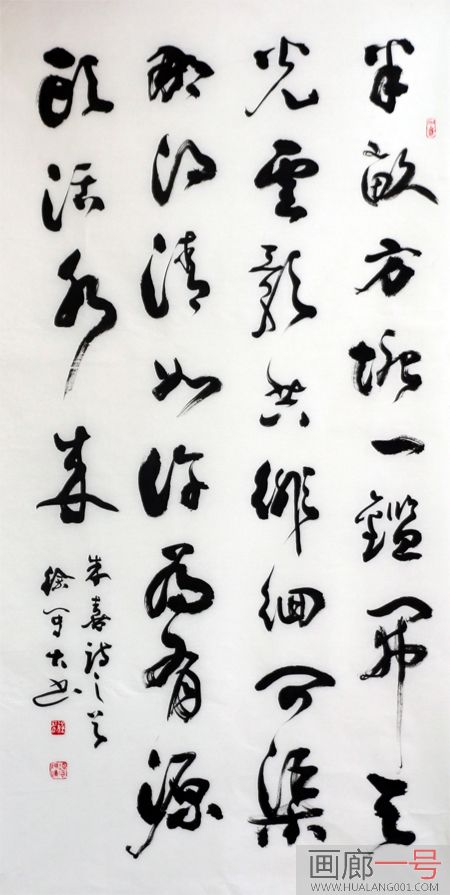 半畝方塘一鑑開天
光雲影共徘徊問渠
那得清如許為有源
頭活水來
朱熹詩一首
徐 書
画廊一号
WWW.HUALANG001.COM